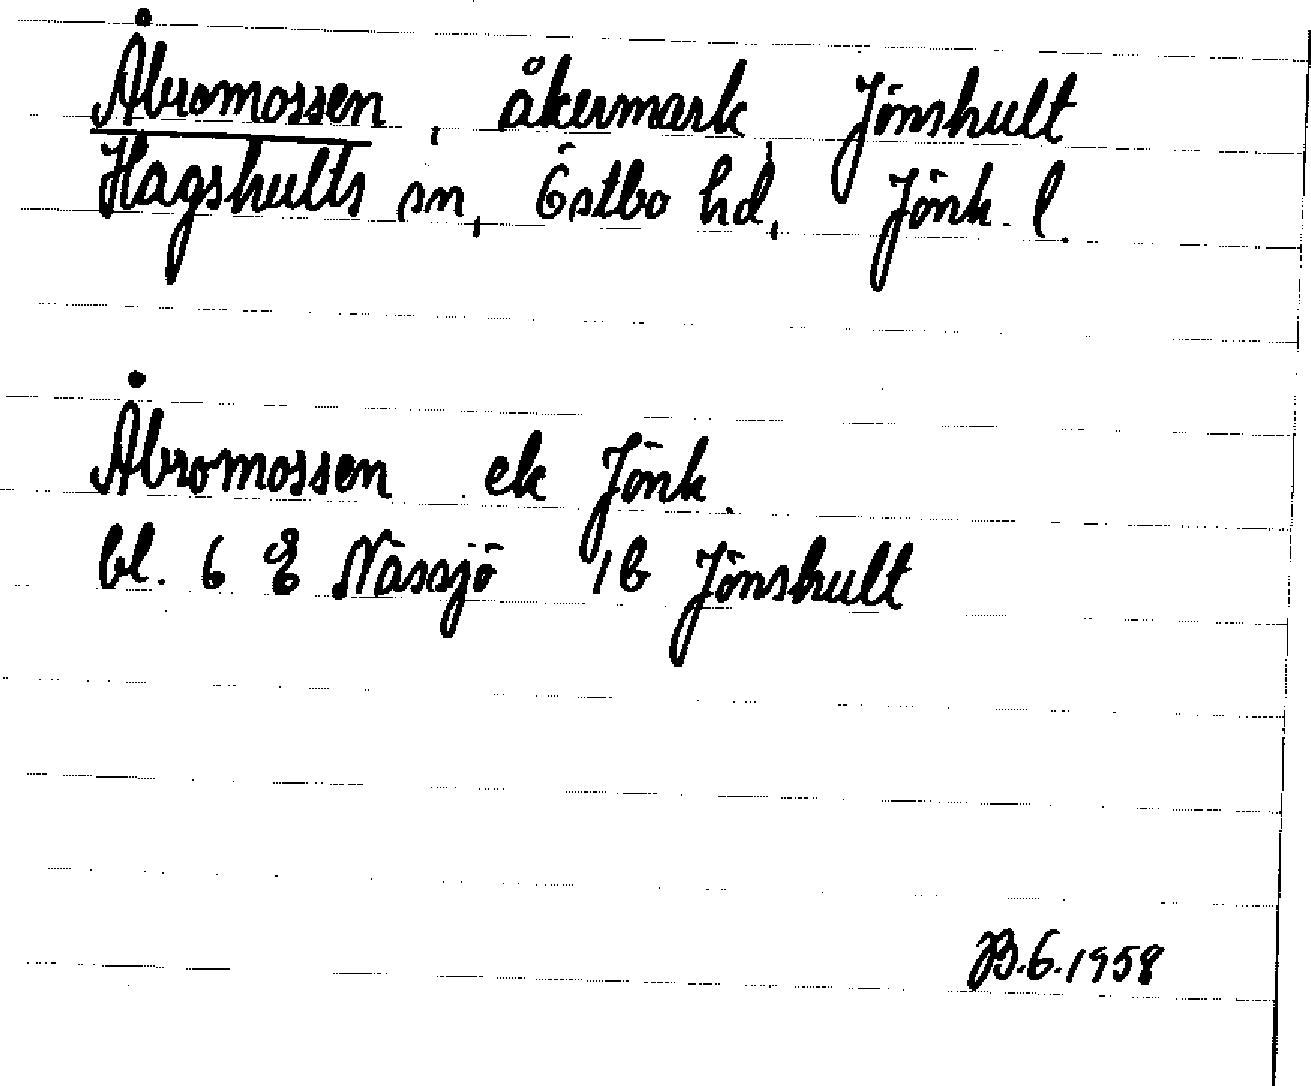 Åbromossen, åkermark, Jönshult
Hagshults sn, Östbo hd, Jönk. l.
Åbromossen ek Jönk.
bl. 6 E Nässjö 1b Jönshult
B.G.1958